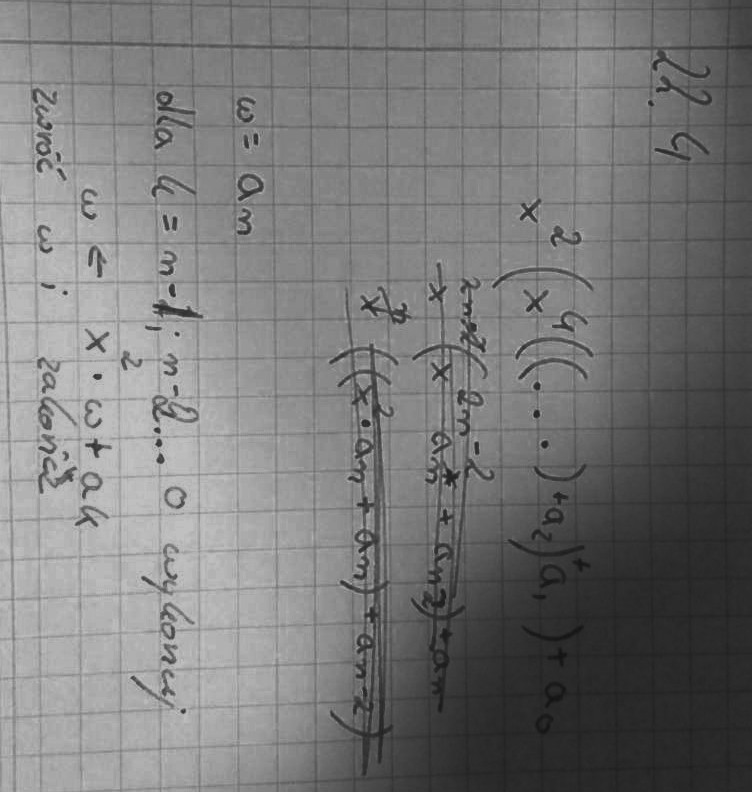 22.4
x² (x⁴((...) + a₂) + a₁) + a₀
(x²ⁿ⁻² aₙ + aₙ₋₂) + aₙ
((x² · aₙ + aₙ) + aₙ₋₂)
w = an
dla k = n-1; n-2... 0 wykonuj
w ← x² · w + ak
zwróć w i zakończ